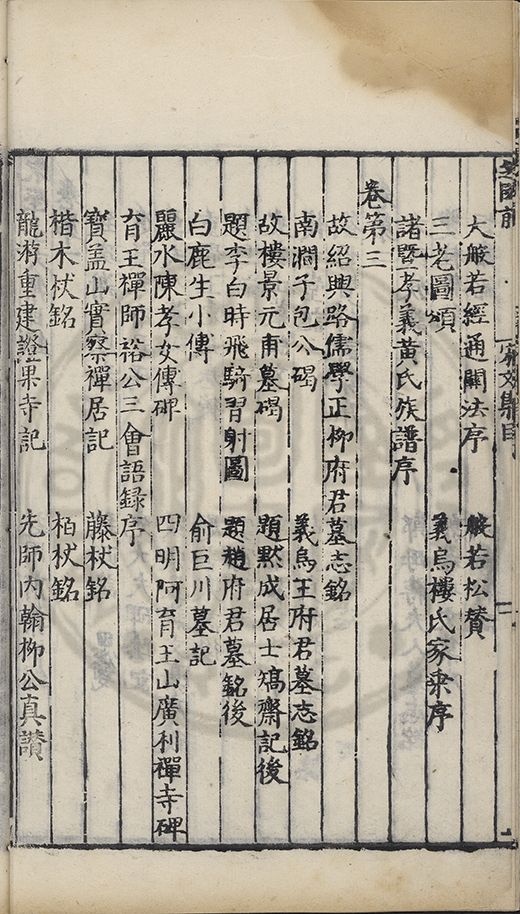 大般若經通關法序　般若松贊
三老圖頌　義烏樓氏家乘序
諸暨孝義黃氏族譜序
卷第三
故紹興路儒學正柳府君墓志銘
南澗子包公碣　義烏王府君墓志銘
故樓景元甫墓碣　題默成居士矯齋記後
題李白時飛騎習射圖　題趙府君墓銘後
白鹿生小傳　俞巨川墓記
麗水陳孝女傳碑　四明阿育王山廣利禪寺碑
育王禪師裕公三會語録序
寶盖山實際禪居記　藤杖銘
楷木杖銘　栢杖銘
龍游重建證果寺記　先師内翰柳公真讃